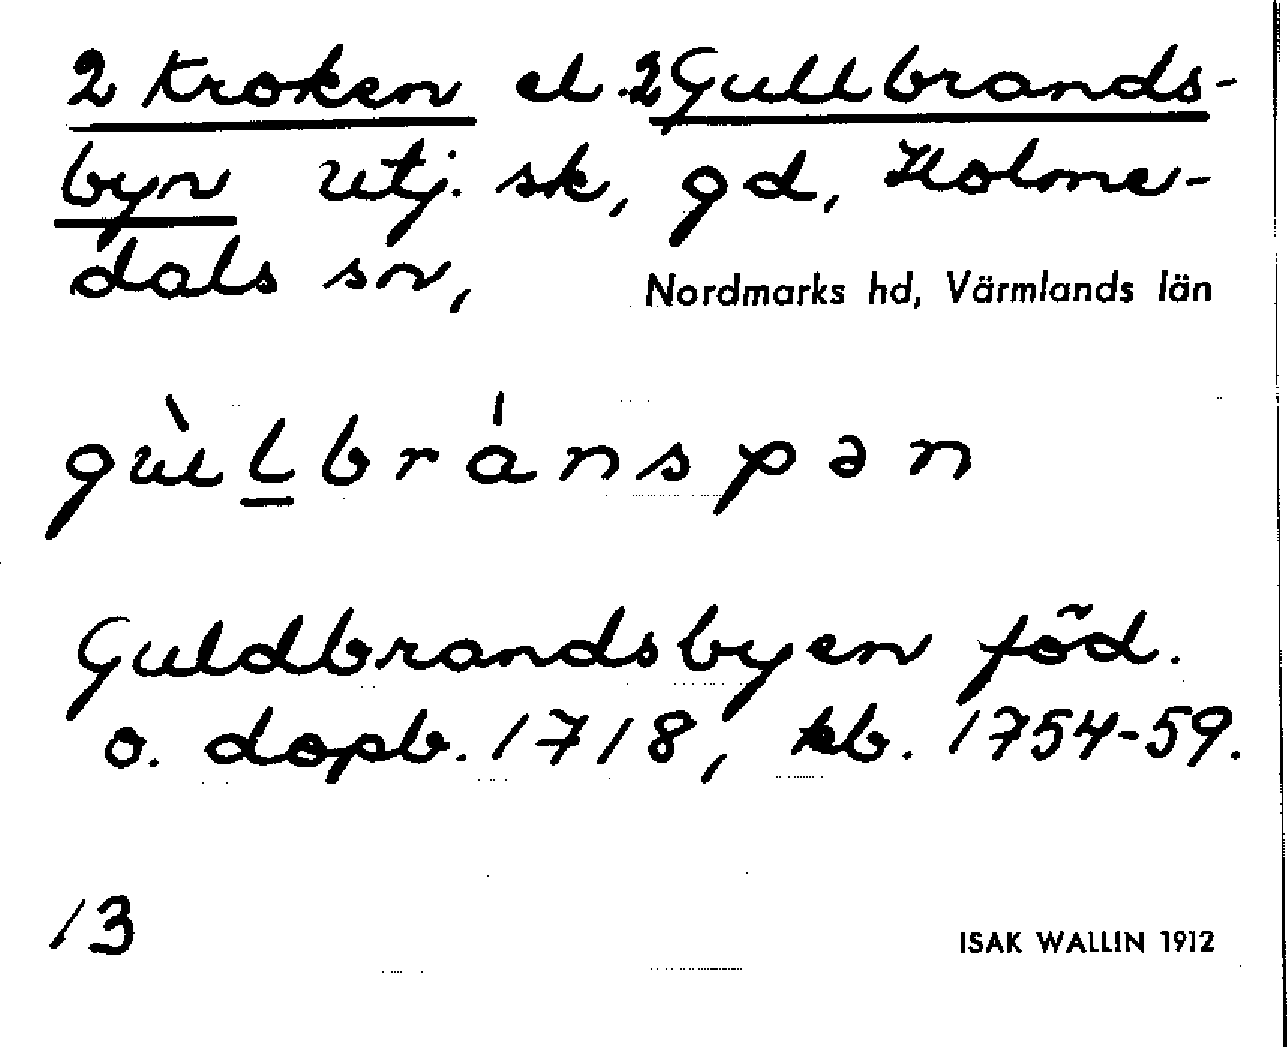 2 Kroken el. 2 Gullbrands-
byn utj. sk, gd, Holme-
dals sn,
Nordmarks hd, Värmlands län
gùllbránspən
Guldbrandsbyen föd.
o. dopb. 1718, kb. 1754-59.
13
ISAK WALLIN 1912